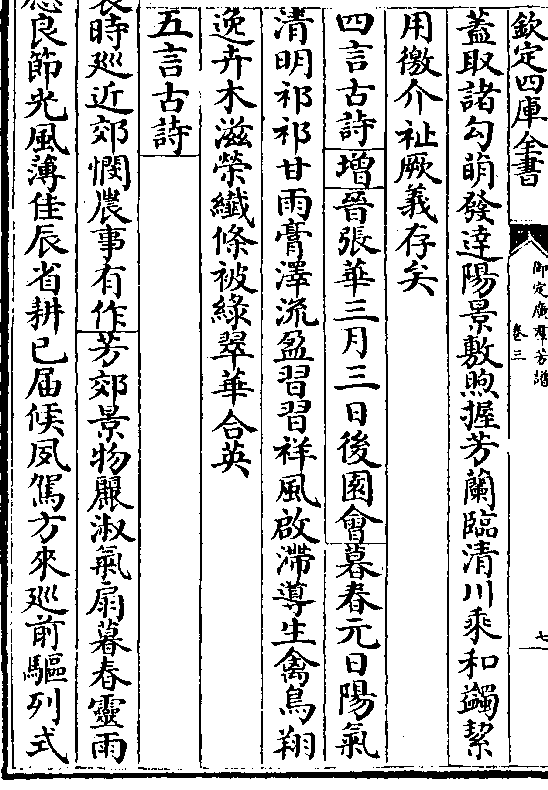 欽定四庫全書
御定廣羣芳譜
卷三
七
蓋取諸勾萌發達陽景敷煦握芳蘭臨清川乘和蠲絜
用徼介祉厥義存矣
四言古詩增晉張華三月三日後園會暮春元日陽氣
清明祁祁甘雨膏澤流盈習習祥風啟滯導生禽鳥翔
逸卉木滋榮纖條被綠翠華含英
五言古詩
時廵近郊憫農事有作芳郊景物麗淑氣扇暮春靈雨
良節光風薄佳辰省耕已届候夙駕方來廵前驅列式